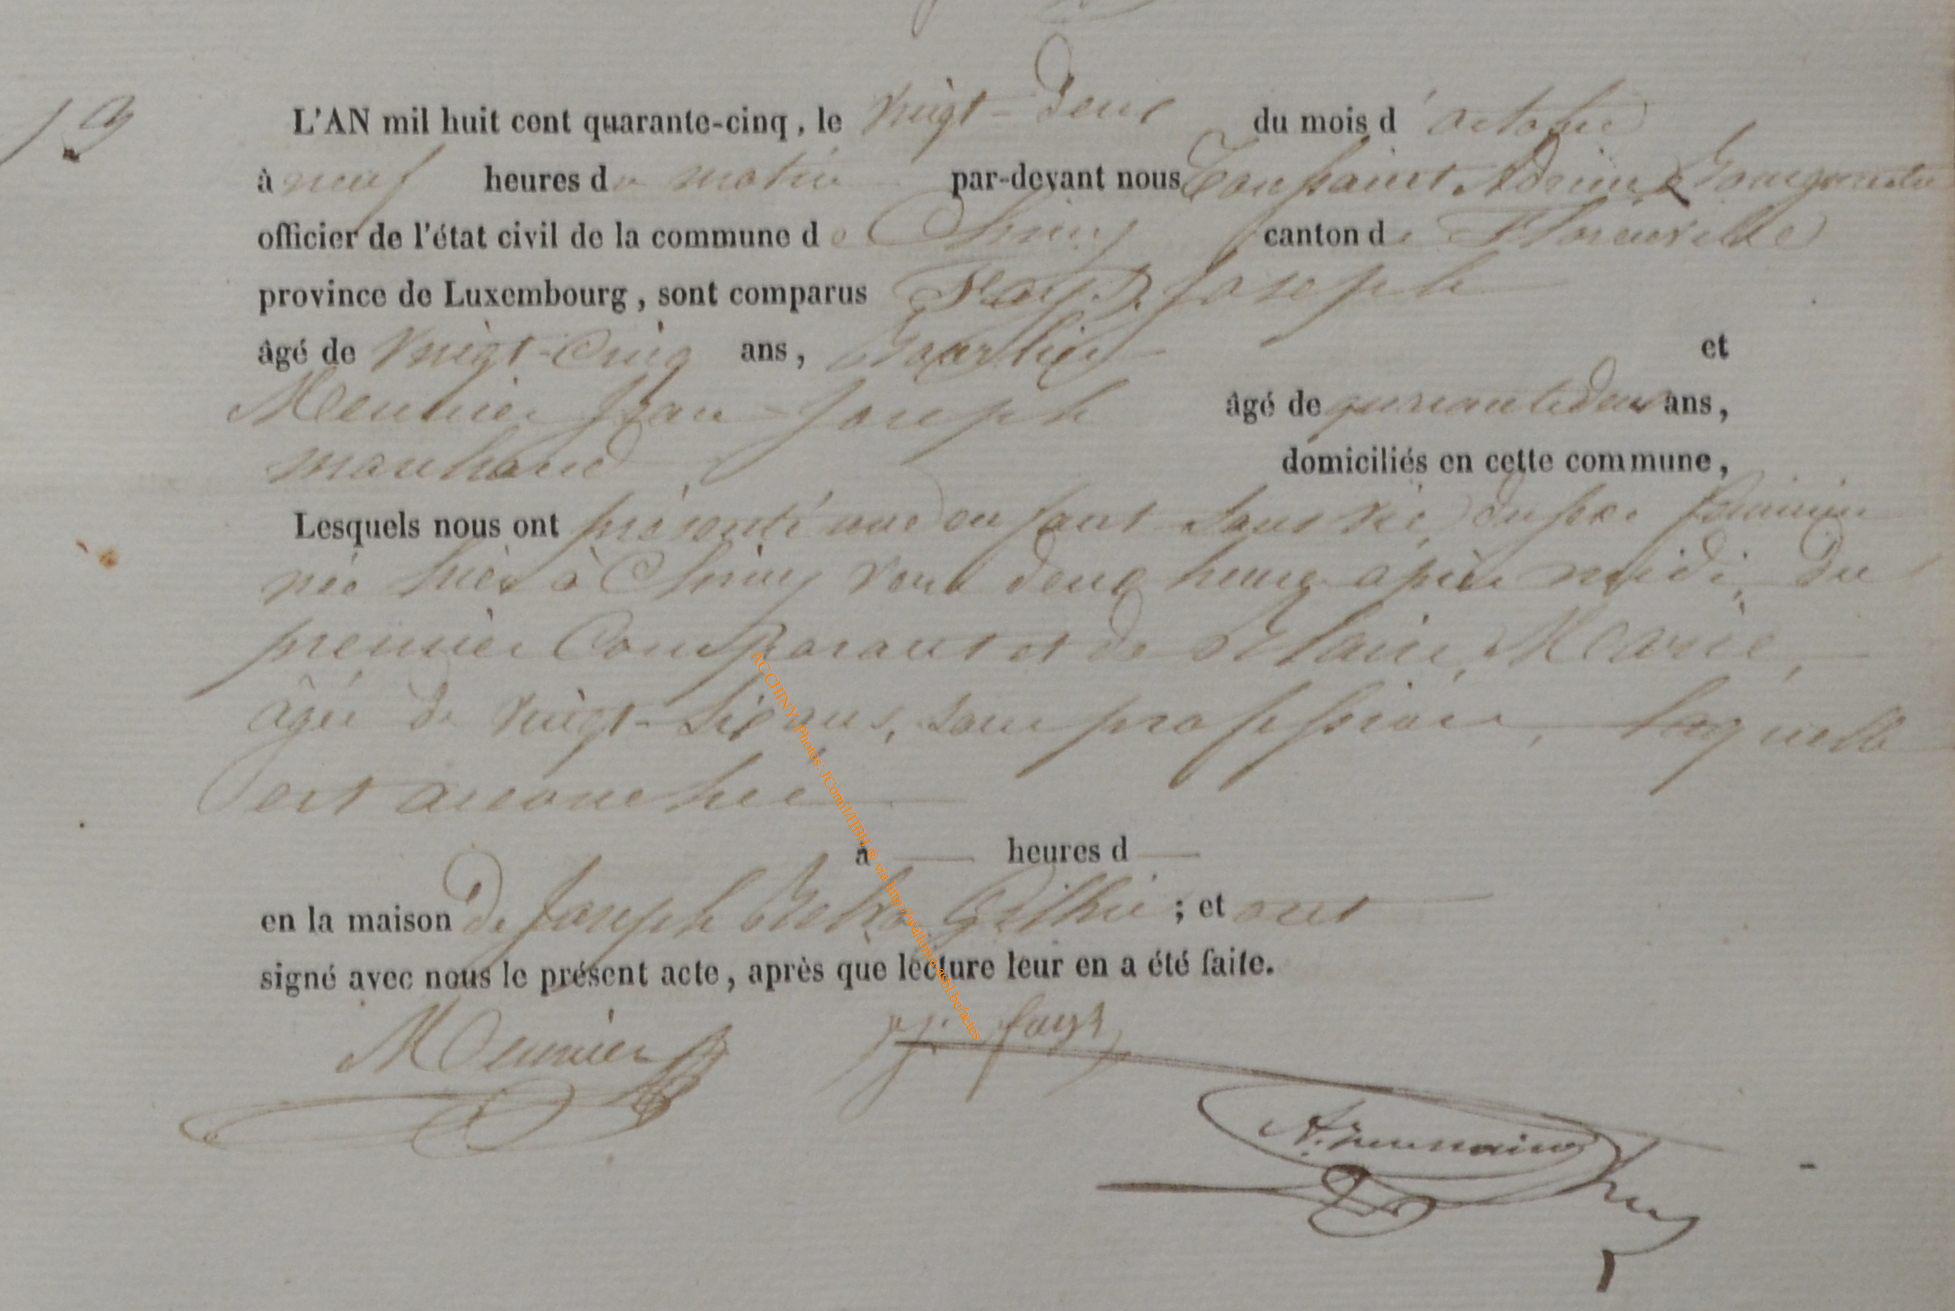 19
L'AN mil huit cent quarante-cinq, le vingt-deux du mois d'octobre
à neuf heures du matin par-devant nous Toussaint Adrien
officier de l'état civil de la commune de Chiny canton de Florenville
province de Luxembourg, sont comparus Joseph
âgé de vingt-cinq ans, et
Meunier Jean-Joseph âgé de quarante deux ans,
marchand domiciliés en cette commune,
Lesquels nous ont présenté une enfant sans vie, du sexe féminin
née hier à Chiny vers deux heures après midi, du
premier Comparant et de Marie,
âgée de vingt-six ans, sans profession, laquelle
est accouchée
à heures d
en la maison de Joseph ; et ont
signé avec nous le présent acte, après que lecture leur en a été faite.
Meunier